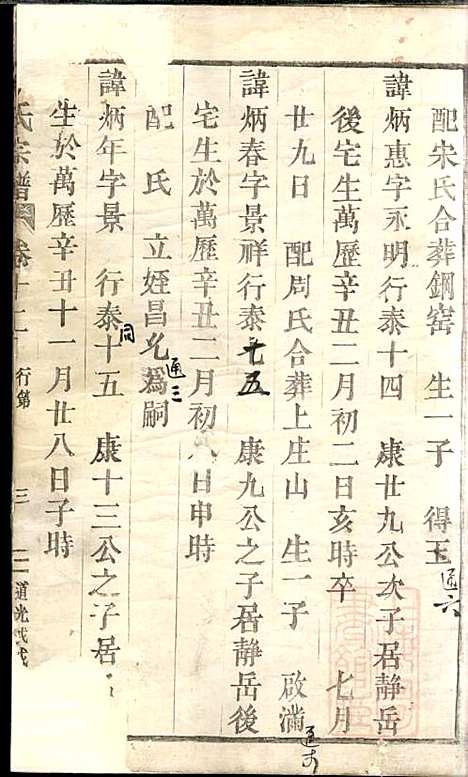 配宋氏合葬鋼窑 生一子 得玉 通六
諱炳惠字永明行泰十四 康廿九公次子居静岳
後宅生萬歷辛丑二月初二日亥時卒 七月
廿九日 配周氏合葬上庄山 生一子 啟滿
諱炳春字景祥行泰十五 康九公之子居静岳後
宅生於萬歷辛丑二月初八日申時
配 氏 立姪昌允爲嗣 通三
諱炳年字景 行泰十五 同 康十三公之子居
生於萬歷辛丑十一月廿八日子時
氏宗譜 卷十二 行第 三 道光戊戌